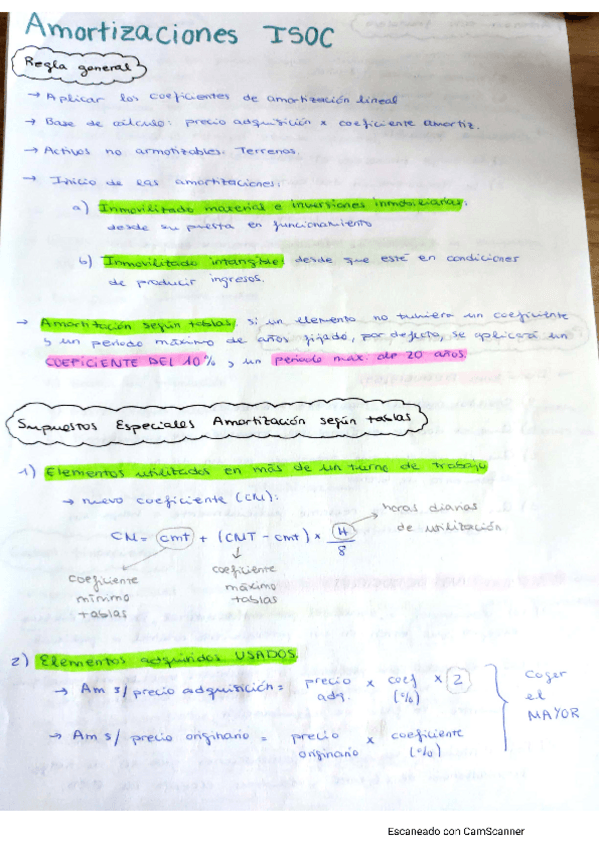 Amortizaciones ISOC
Regla general
→ Aplicar los coeficientes de amortización lineal
→ Base de cálculo: precio adquisición x coeficiente amortiz.
→ Activos no armotizables: Terrenos.
→ Inicio de las amortizaciones:
a) Inmovilizado material e inversiones inmobiliarias:
desde su puesta en funcionamiento
b) Inmovilizado intangible: desde que esté en condiciones
de producir ingresos.
→ Amortización según tablas: si un elemento no tuviera un coeficiente
y un periodo máximo de años fijado, por defecto, se aplicará un
COEFICIENTE DEL 10% y un periodo max. de 20 años.
Supuestos Especiales Amortización según tablas
1) Elementos utilizados en más de un turno de trabajo
→ nuevo coeficiente (CN):
horas diarias
de utilización
CN = cmt + (CMT - cmt) x H/8
coeficiente
mínimo
tablas
coeficiente
máximo
tablas
2) Elementos adquiridos USADOS.
→ Am s/ precio adquisición = precio adq. x coef (%) x 2
→ Am s/ precio originario = precio originario x coeficiente (%)
Coger
el
MAYOR
Escaneado con CamScanner